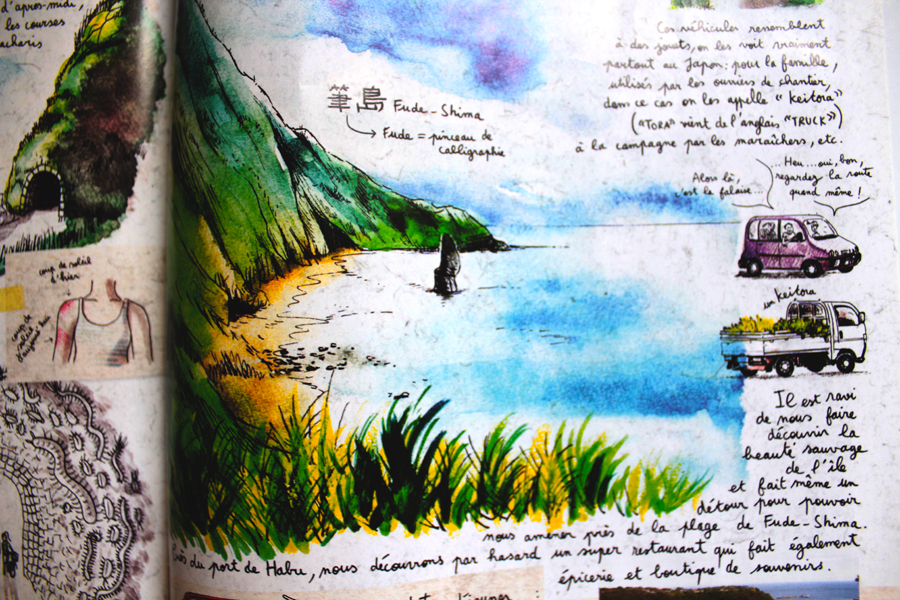 d'après-midi,
les courses
筆島 Fude-Shima
Fude = pinceau de
calligraphie
Ces véhicules ressemblent
à des jouets, on les voit vraiment
partout au Japon: pour la famille,
utilisés par les ouvriers de chantier,
dans ce cas on les appelle "Keitora"
("TORA" vient de l'anglais "TRUCK")
à la campagne par les maraîchers, etc.
Alors là,
c'est la falaise...
...Heu...oui, bon,
regardez la route
quand même !
un Keitora
coup de soleil
d'hier
coup de
soleil
Il est ravi
de nous faire
découvrir la
beauté sauvage
de l'île
et fait même un
détour pour pouvoir
nous amener près de la plage de Fude-Shima.
Près du port de Habu, nous découvrons par hasard un super restaurant qui fait également
épicerie et boutique de souvenirs.